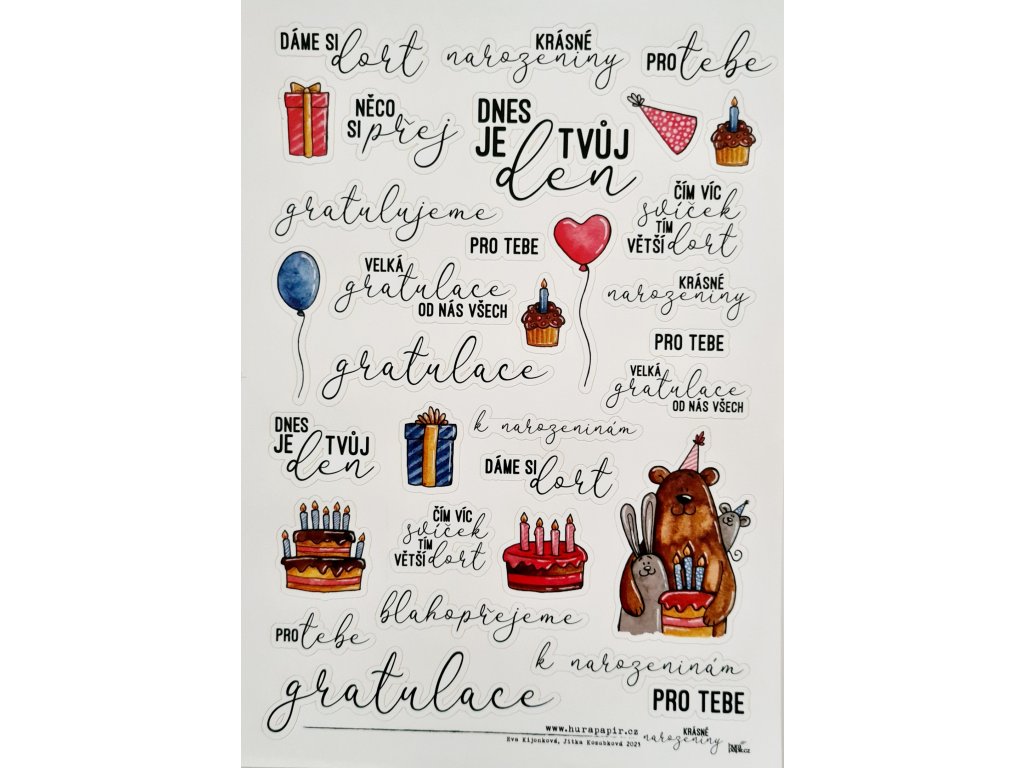 DÁME SI dort
KRÁSNÉ
narozeniny
PRO tebe
NĚCO
SI přej
DNES
JE TVŮJ
den
ČÍM VÍC
svíček
TÍM
VĚTŠÍ dort
gratulujeme
PRO TEBE
VELKÁ
gratulace
OD NÁS VŠECH
KRÁSNÉ
narozeniny
PRO TEBE
gratulace
VELKÁ
gratulace
OD NÁS VŠECH
DNES
JE TVŮJ
den
k narozeninám
DÁME SI dort
ČÍM VÍC
svíček
TÍM
VĚTŠÍ dort
blahopřejeme
PRO tebe
k narozeninám
gratulace
PRO TEBE
www.hurapapir.cz
Eva Kijonková, Jitka Kozubková 2023
KRÁSNÉ
narozeniny